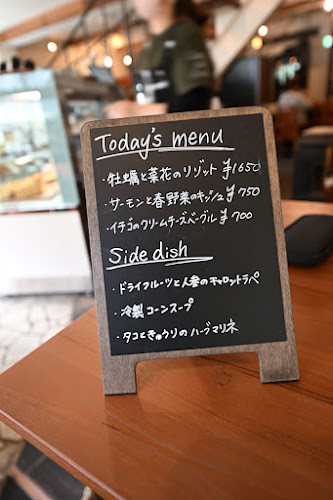 Today's menu
・牡蠣と菜花のリゾット ¥1650
・サーモンと春野菜のキッシュ ¥750
・イチゴのクリームチーズベーグル ¥700
Side dish
・ドライフルーツと人参のキャロットラペ
・冷製コーンスープ
・タコときゅうりのハーブマリネ